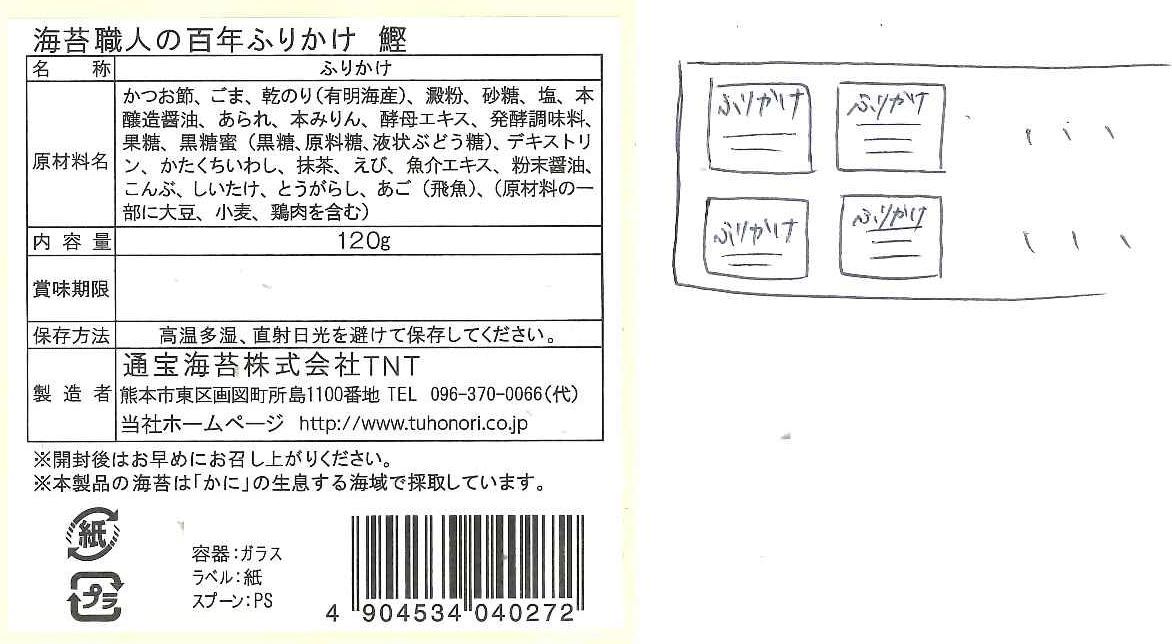 海苔職人の百年ふりかけ 鰹
名称 ふりかけ
原材料名
かつお節、ごま、乾のり(有明海産)、澱粉、砂糖、塩、本
醸造醤油、あられ、本みりん、酵母エキス、発酵調味料、
果糖、黒糖蜜(黒糖、原料糖、液状ぶどう糖)、デキストリ
ン、かたくちいわし、抹茶、えび、魚介エキス、粉末醤油、
こんぶ、しいたけ、とうがらし、あご(飛魚)、(原材料の一
部に大豆、小麦、鶏肉を含む)
内容量 120g
賞味期限
保存方法 高温多湿、直射日光を避けて保存してください。
製造者
通宝海苔株式会社TNT
熊本市東区画図町所島1100番地 TEL 096-370-0066(代)
当社ホームページ http://www.tuhonori.co.jp
※開封後はお早めにお召し上がりください。
※本製品の海苔は「かに」の生息する海域で採取しています。
紙
プラ
容器:ガラス
ラベル:紙
スプーン:PS
4 904534 040272
ふりかけ ふりかけ
ふりかけ ふりかけ